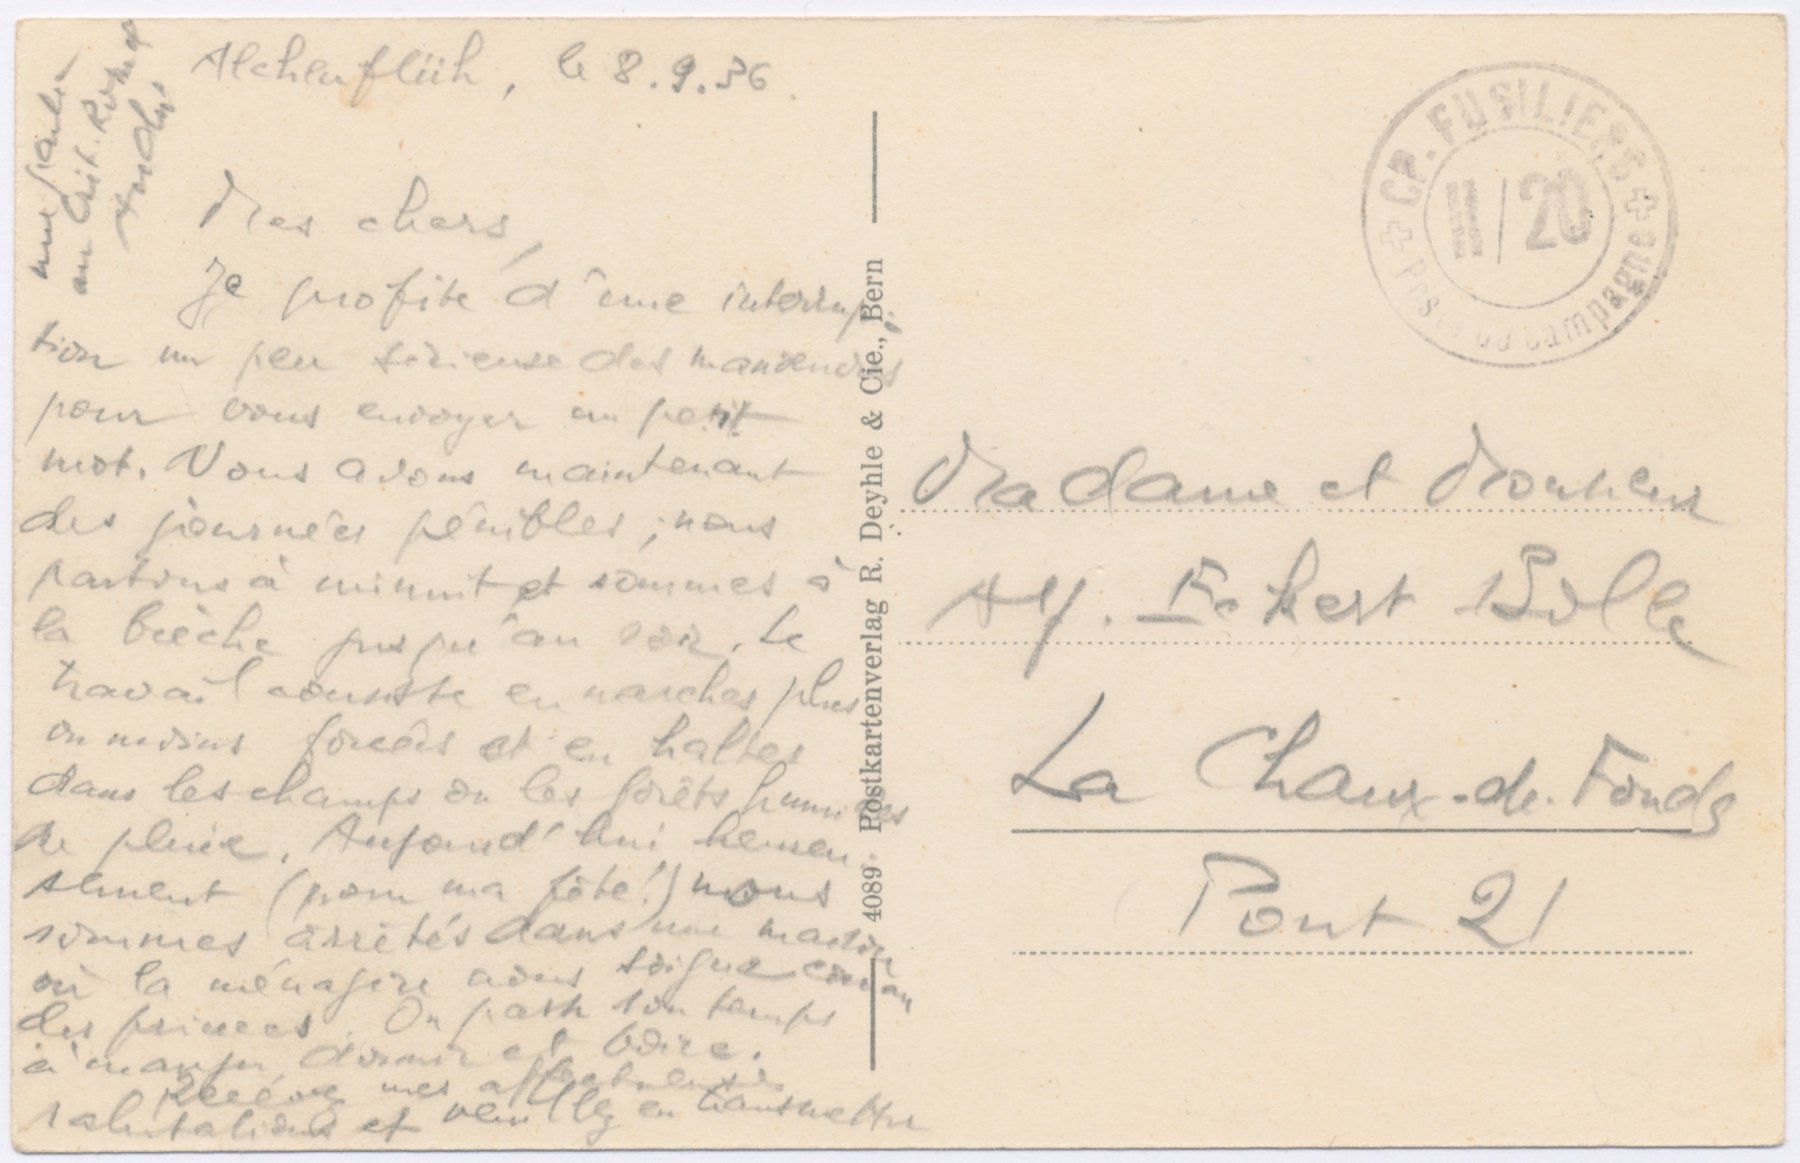 Alchenflüh, le 8.9.36.
Mes chers,
Je profite d'une interrup-
tion un peu sérieuse des manœuvres
pour vous envoyer un petit
mot. Nous avons maintenant
des journées pénibles ; nous
partons à minuit et sommes à
la brèche jusqu'au soir. Le
travail consiste en marches plus
ou moins forcées et en haltes
dans les champs ou les forêts humides
de pluie. Aujourd'hui heureu-
sement (pour ma fête!) nous
sommes arrêtés dans une maison
où la ménagère nous soigne comme
des princes. On passe son temps
à manger, dormir et boire.
Recevez mes affectueuses
salutations et veuillez en transmettre
une partie
au Crêt.
CP. FUSILIERS
II/20
Poste de campagne
Madame et Monsieur
Eckert
La Chaux-de-Fonds
Pont 21
4089 Postkartenverlag R. Deyhle & Cie., Bern